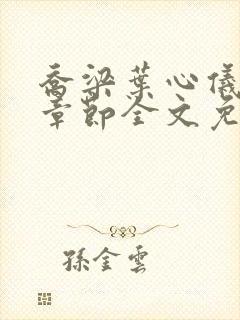 喬梁葉心儀
章節全文免
孫金雲